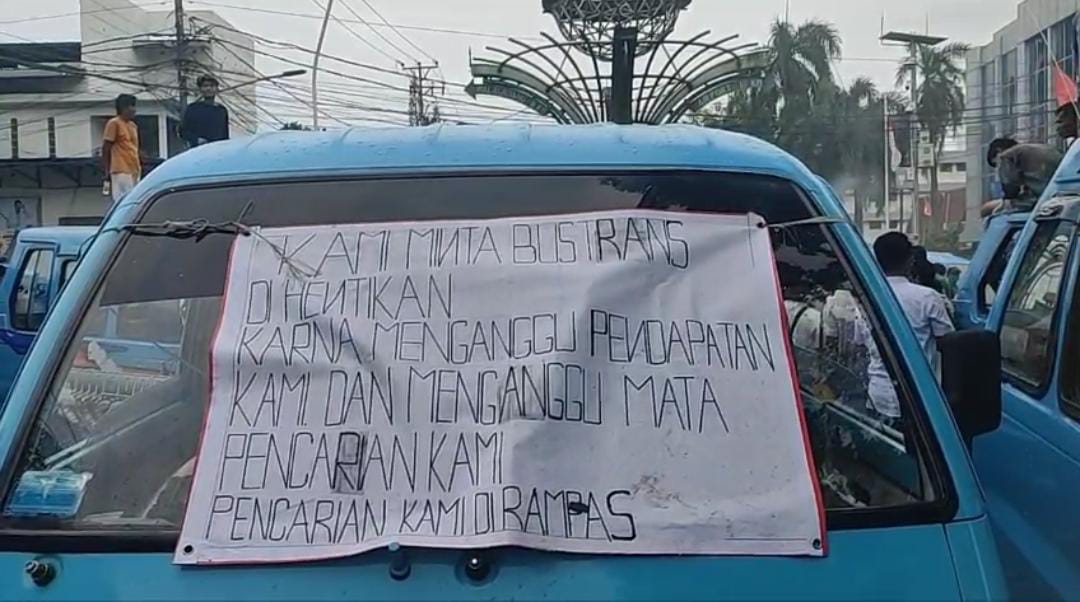 KAMI MINTA BUSTRANS
DI HENTIKAN
KARNA MENGANGGU PENDAPATAN
KAMI. DAN MENGANGGU MATA
PENCARIAN KAMI
PENCARIAN KAMI DI RAMPAS